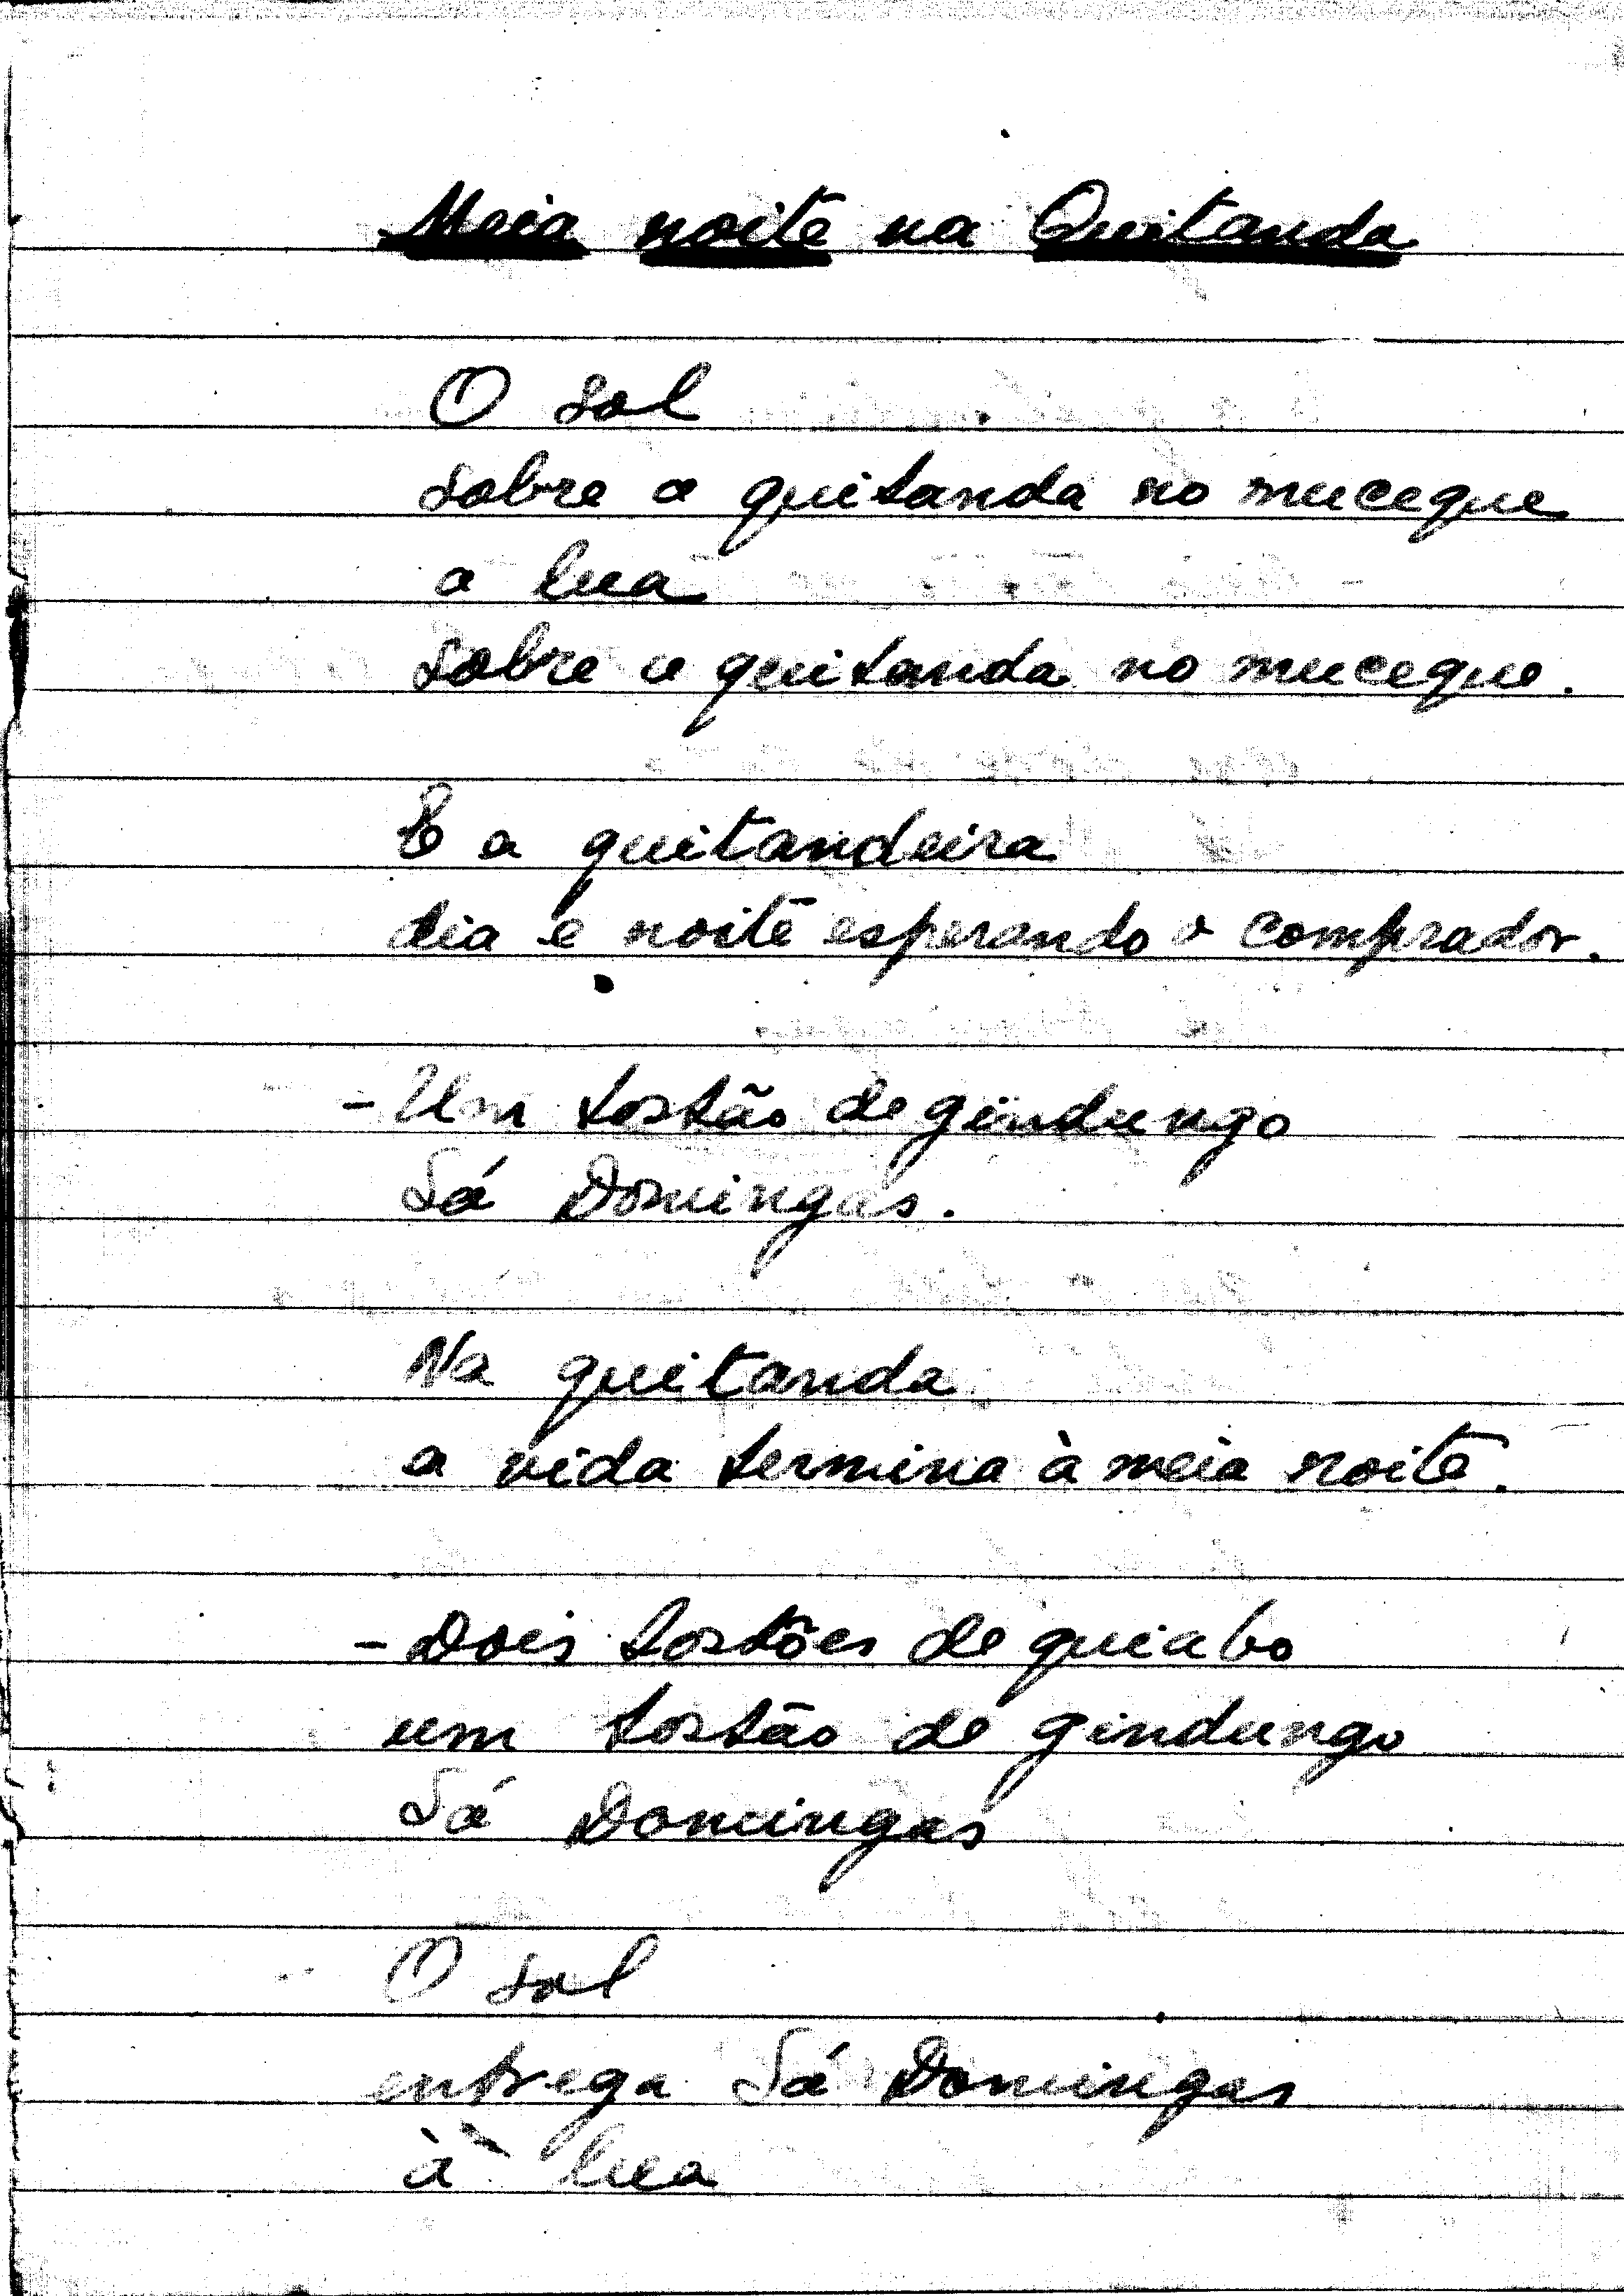 Meia noite na Quitanda
O sol
sobre a quitanda no muceque
a lua
sobre a quitanda no muceque.
E a quitandeira
dia e noite esperando o comprador.
- Um tostão de gindungo
Sá Domingas.
Na quitanda
a vida termina à meia noite.
- Dois tostões de quiabo
um tostão de gindungo
Sá Domingas
O sol
entrega Sá Domingas
à lua